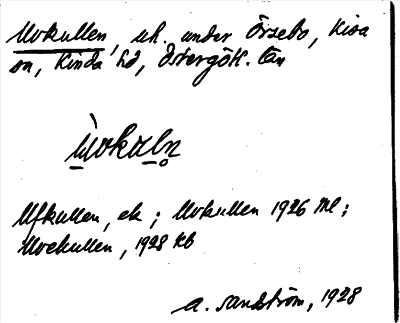 Uvkullen, uh. under Örsebo, Kisa
sn, Kinda hd, Östergötl. län
Ulfkullen, ek ; Uvkullen 1926 Ml ;
Uvekullen, 1928 Kb
A. Sandström, 1928